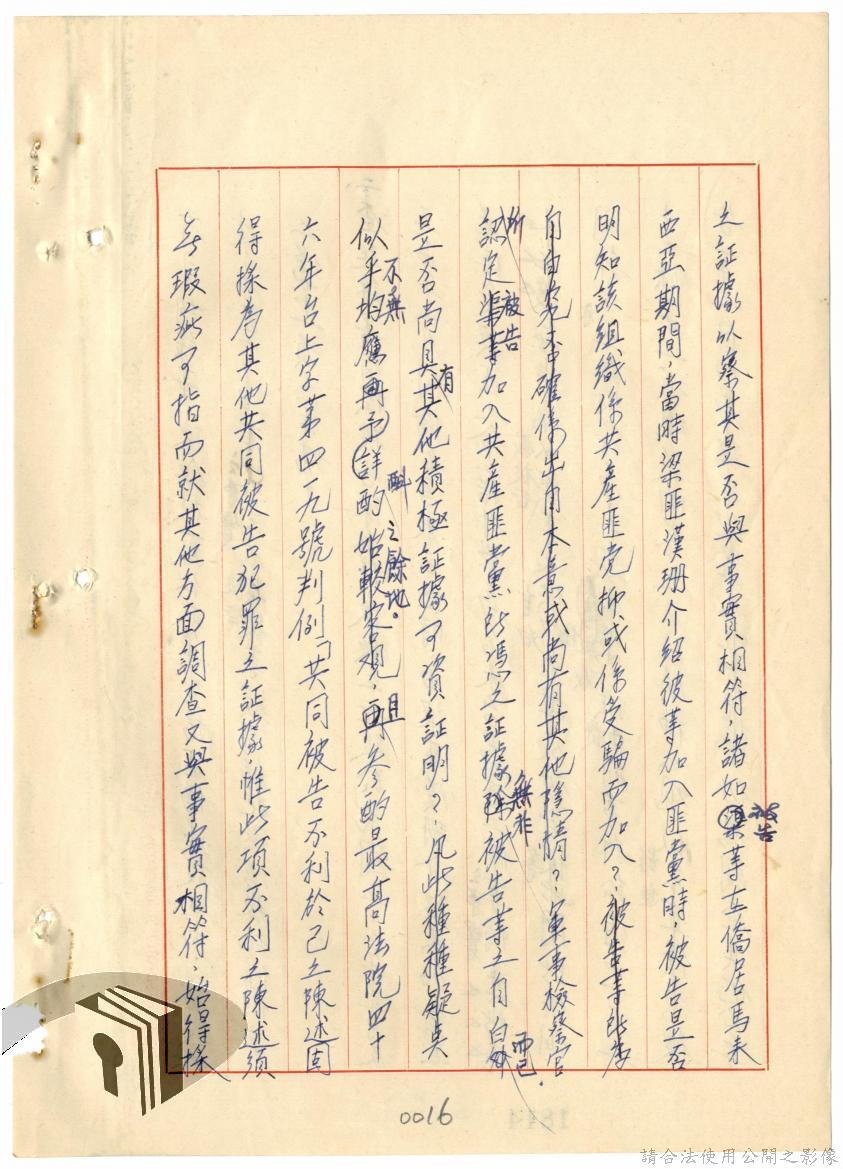 之証據以察其是否與事實相符，諸如被告等在僑居馬來
西亞期間，當時梁匪漢珊介紹彼等加入匪黨時，被告是否
明知該組織係共產匪党抑或係受騙而加入？被告等所為
自白究否確係出自本意或尚有其他隱情？軍事檢察官
所認定被告等加入共產匪黨所憑之証據無非被告等之自白而已．
是否尚具有其他積極証據可資証明？凡此種種疑矣
似乎不無再予斟酌之餘地。且參酌最高法院四十
六年台上字第四一九號判例「共同被告不利於己之陳述固
得採為其他共同被告犯罪之証據，惟此項不利之陳述須
無瑕疵可指而就其他方面調查又與事實相符，始得採
0016
請合法使用公開之影像